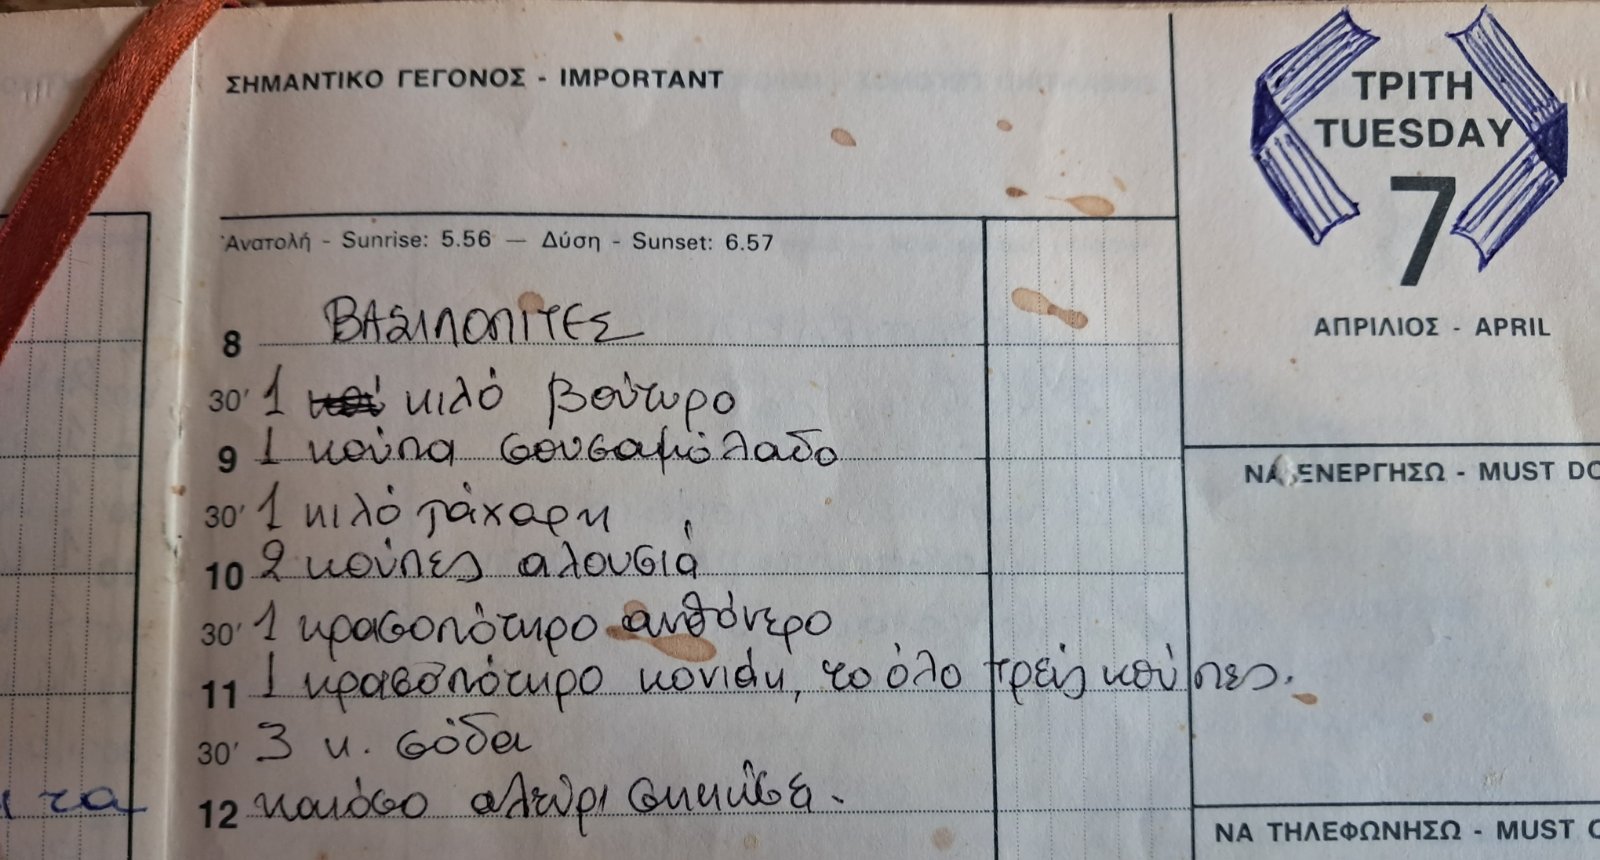 ΣΗΜΑΝΤΙΚΟ ΓΕΓΟΝΟΣ - IMPORTANT
ΤΡΙΤΗ
TUESDAY
7
ΑΠΡΙΛΙΟΣ - APRIL
Ἀνατολή - Sunrise: 5.56 — Δύση - Sunset: 6.57
8 ΒΑΣΙΛΟΠΙΤΕΣ
30' 1 κιλό βούτυρο
9 1 κούπα σουσαμόλαδο
30' 1 κιλό ζάχαρη
10 2 κούπες αλουσιά
30' 1 κρασοπότηρο ανθόνερο
11 1 κρασοπότηρο κονιάκ, το όλο τρείς κούπες.
30' 3 κ. σόδα
12 αλεύρι
τα
ΝΑ ΕΝΕΡΓΗΣΩ - MUST DO
ΝΑ ΤΗΛΕΦΩΝΗΣΩ - MUST C